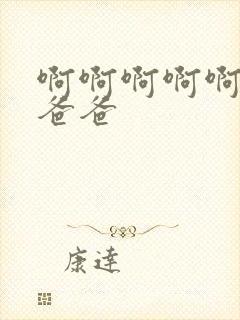 啊啊啊啊啊
爸爸
康達